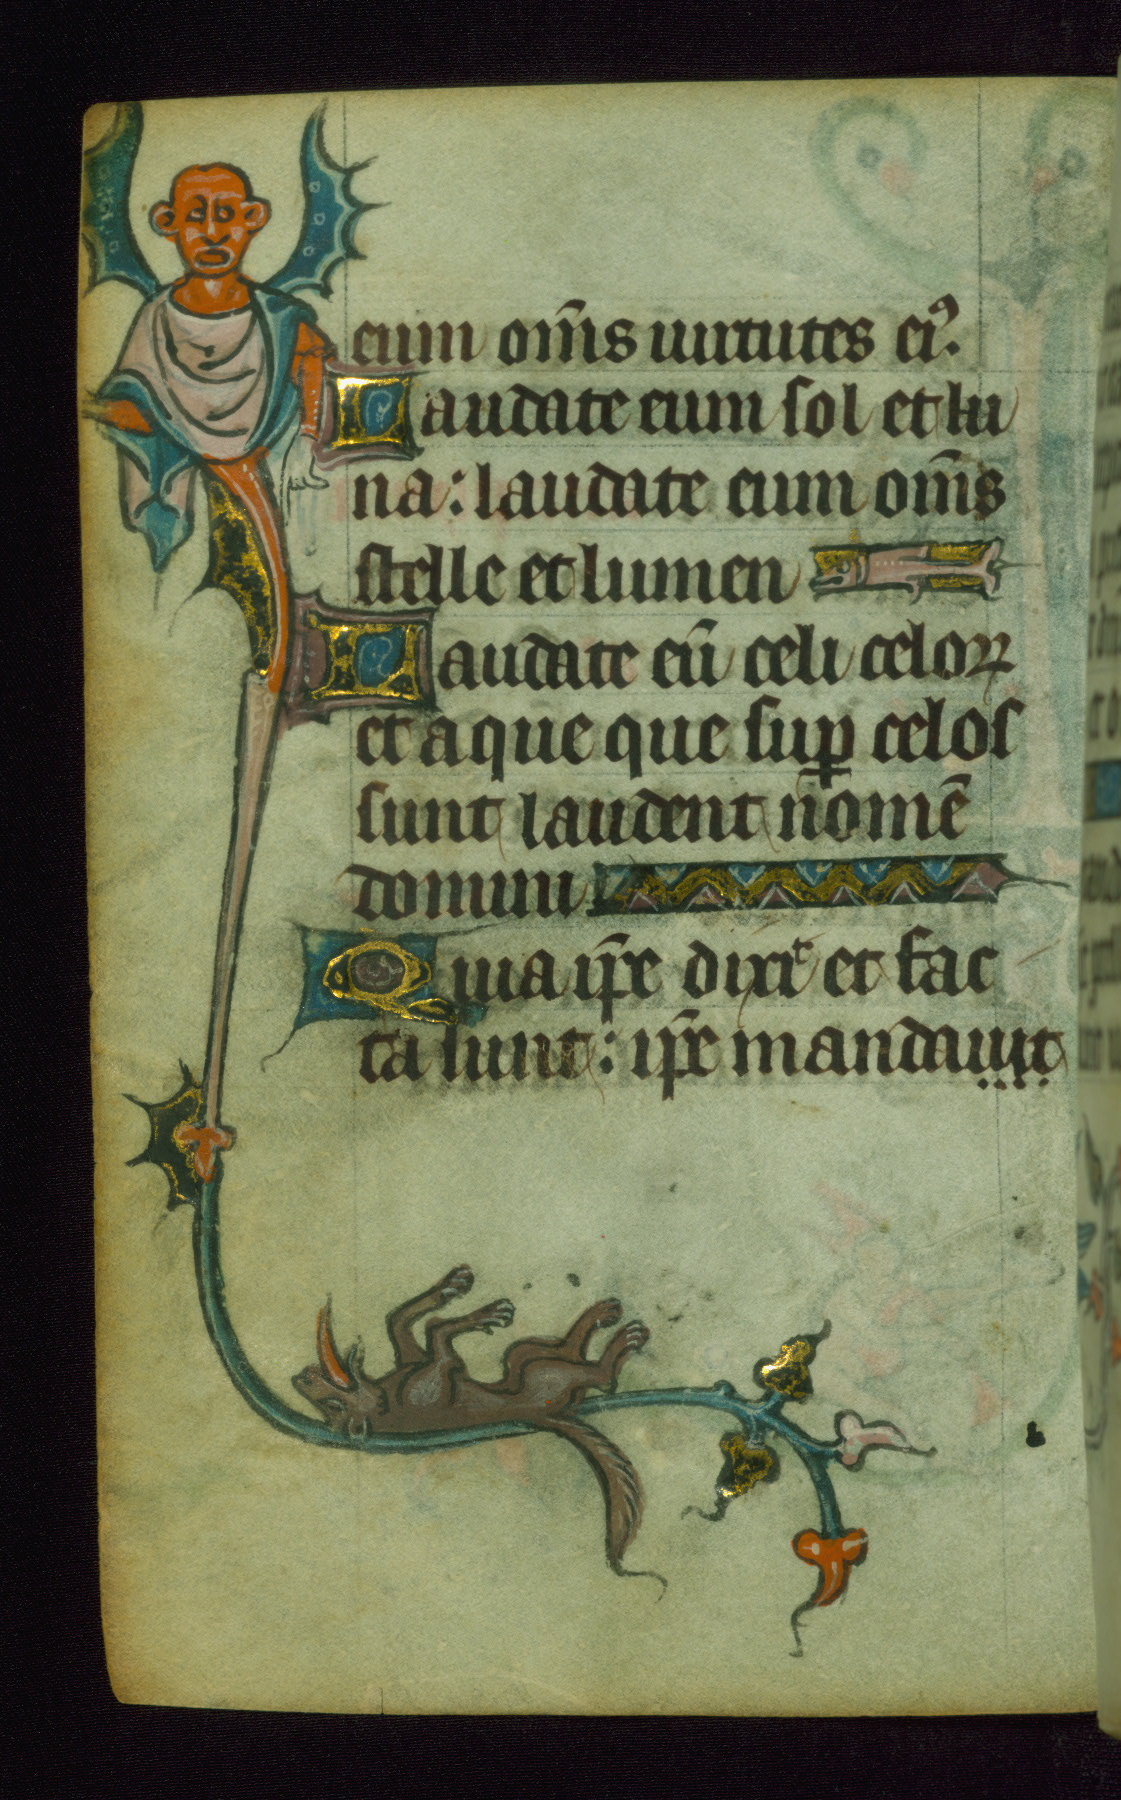 eum om̄s uirtutes eiꝰ.
Laudate eum sol et lu
na: laudate eum om̄s
stelle et lumen
Laudate eū celi celoꝝ
et aque que suꝑ celos
sunt laudent nomē
domini
Quia ip̄e dixͭ et fac
ta sunt: ip̄e mandauit